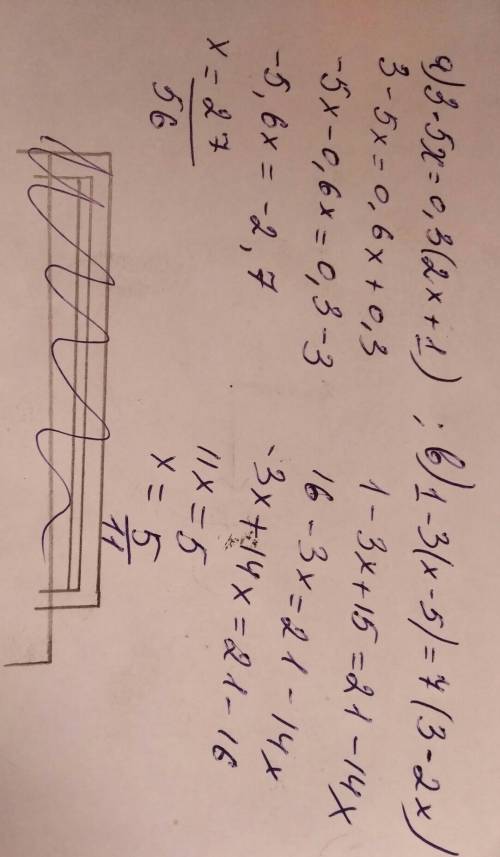 а) 3-5x=0,3(2x+1) ;
3-5x=0,6x+0,3
-5x-0,6x=0,3-3
-5,6x=-2,7
x=27
56
в) 1-3(x-5)=7(3-2x)
1-3x+15=21-14x
16-3x=21-14x
-3x+14x=21-16
11x=5
x=5
11